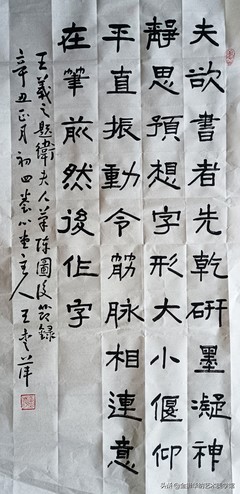 夫欲書者先乾研墨凝神
靜思預想字形大小偃仰
平直振動令筋脉相連意
在筆前然後作字
王羲之題衛夫人筆陣圖後節錄
辛丑正月初四
主人王
头条@金